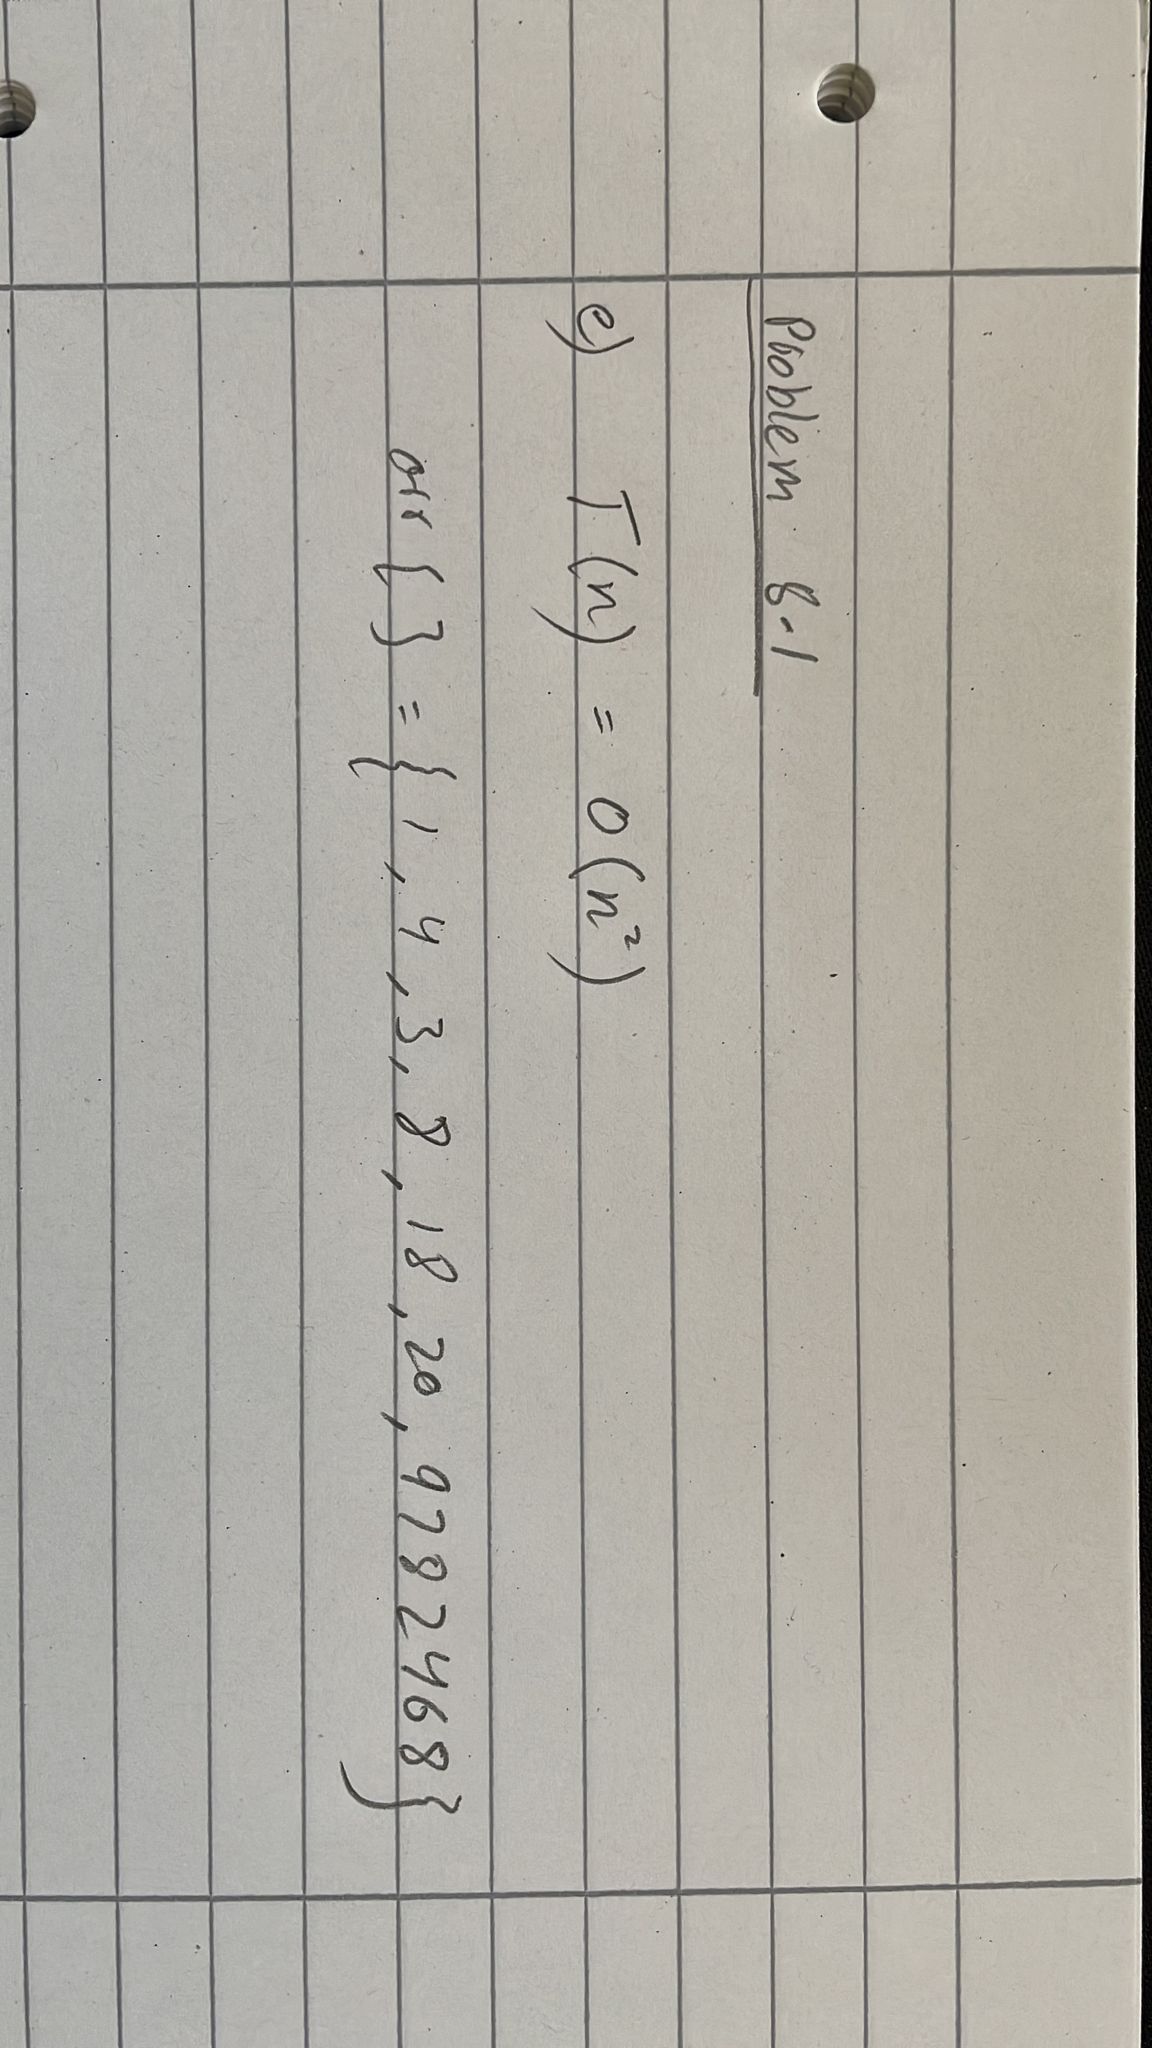 Problem 8.1
e) T(n) = O(n²)
arr { } = { 1 , 4 , 3 , 8 , 18 , 20 , 9782468 }